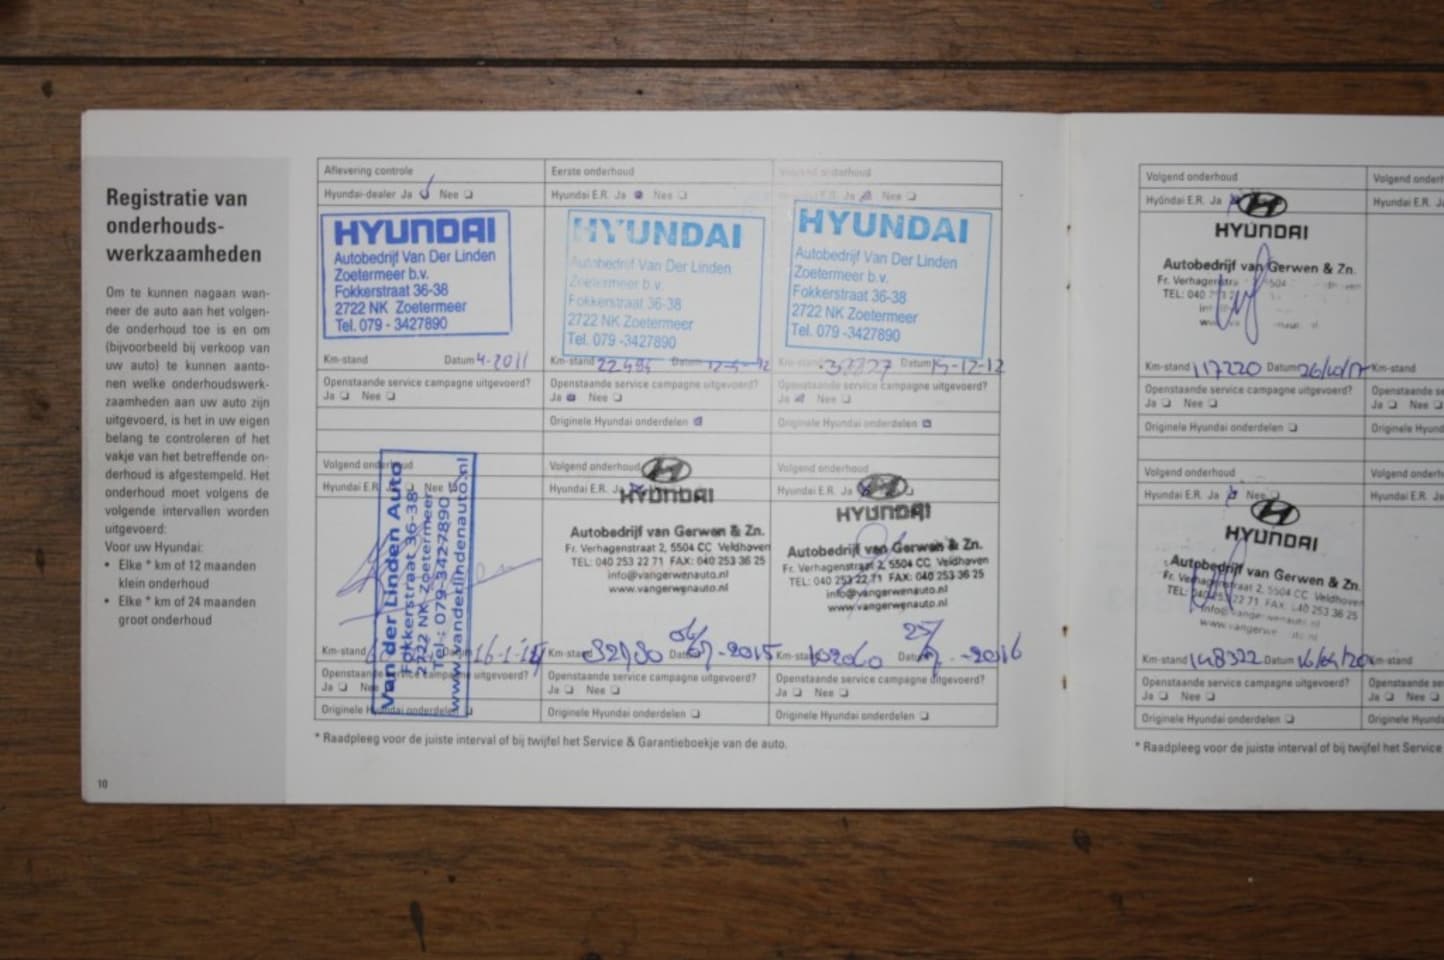 Registratie van
onderhouds-
werkzaamheden
Om te kunnen nagaan wan-
neer de auto aan het volgen-
de onderhoud toe is en om
(bijvoorbeeld bij verkoop van
uw auto) te kunnen aanto-
nen welke onderhoudswerk-
zaamheden aan uw auto zijn
uitgevoerd, is het in uw eigen
belang te controleren of het
vakje van het betreffende on-
derhoud is afgestempeld. Het
onderhoud moet volgens de
volgende intervallen worden
uitgevoerd:
Voor uw Hyundai:
• Elke * km of 12 maanden
klein onderhoud
• Elke * km of 24 maanden
groot onderhoud
10
Aflevering controle
Hyundai-dealer Ja Nee
HYUNDAI
Autobedrijf Van Der Linden
Zoetermeer b.v.
Fokkerstraat 36-38
2722 NK Zoetermeer
Tel. 079 - 3427890
Km-stand Datum 4-2011
Openstaande service campagne uitgevoerd?
Ja Nee
Eerste onderhoud
Hyundai E.R. Ja Nee
HYUNDAI
Autobedrijf Van Der Linden
Zoetermeer b.v.
Fokkerstraat 36-38
2722 NK Zoetermeer
Tel. 079 -3427890
Km-stand Datum
Openstaande service campagne uitgevoerd?
Ja Nee
Originele Hyundai onderdelen
onderhoud
E.R. Ja Nee
HYUNDAI
Autobedrijf Van Der Linden
Zoetermeer b.v.
Fokkerstraat 36-38
2722 NK Zoetermeer
Tel. 079 -3427890
Km-stand Datum 15-12-12
Openstaande service campagne uitgevoerd?
Ja Nee
Originele Hyundai onderdelen
Volgend onderhoud
Hyundai E.R. Nee
Van der Linden Auto
Fokkerstraat 36-38
2722 NK Zoetermeer
Tel.: 079-3427890
www.vanderlindenauto.nl
Km-stand Datum 16-1-14
Openstaande service campagne uitgevoerd?
Ja Nee
Originele Hyundai onderdelen
Volgend onderhoud
Hyundai E.R. Ja
HYUNDAI
Autobedrijf van Gerwen & Zn.
Fr. Verhagenstraat 2, 5504 CC Veldhoven
TEL: 040 253 22 71 FAX: 040 253 36 25
info@vangerwenauto.nl
www.vangerwenauto.nl
Km-stand Datum -2015
Openstaande service campagne uitgevoerd?
Ja Nee
Originele Hyundai onderdelen
Volgend onderhoud
Hyundai E.R. Ja
HYUNDAI
Autobedrijf van Gerwen & Zn.
Fr. Verhagenstraat 2, 5504 CC Veldhoven
TEL: 040 253 22 71 FAX: 040 253 36 25
info@vangerwenauto.nl
www.vangerwenauto.nl
Km-stand 102060 Datum -2016
Openstaande service campagne uitgevoerd?
Ja Nee
Originele Hyundai onderdelen
* Raadpleeg voor de juiste interval of bij twijfel het Service & Garantieboekje van de auto.
Volgend onderhoud
Hyundai E.R. Ja
HYUNDAI
Autobedrijf van Gerwen & Zn.
TEL: 040
Km-stand 117220 Datum 26/10/17
Openstaande service campagne uitgevoerd?
Ja Nee
Originele Hyundai onderdelen
Volgend onderh
Hyundai E.R. Ja
Km-stand
Openstaande se
Ja Nee
Originele Hyund
Volgend onderhoud
Hyundai E.R. Ja Nee
HYUNDAI
Autobedrijf van Gerwen & Zn.
Fr. Verhagenstraat 2, 5504 CC Veldhoven
TEL: 040 253 22 71 FAX: 040 253 36 25
Km-stand 148322 Datum
Openstaande service campagne uitgevoerd?
Ja Nee
Originele Hyundai onderdelen
Volgend onderh
Hyundai E.R. Ja
Km-stand
Openstaande se
Ja Nee
Originele Hyund
* Raadpleeg voor de juiste interval of bij twijfel het Service